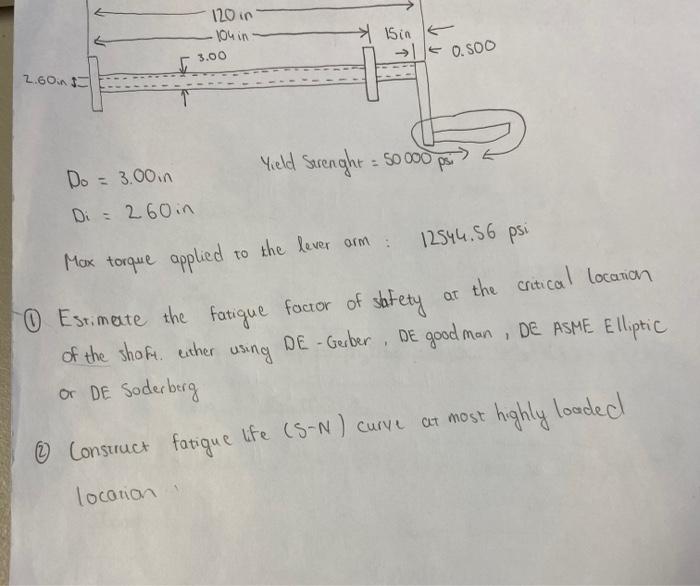 120 in
104 in
15in
0.500
3.00
2.60in
Yield Srrenghr = 50 000 psi
Do = 3.00in
Di = 2.60in
Max torque applied to the lever arm : 12544.56 psi
① Esrimate the fatigue factor of safety at the critical location
of the shaft. either using DE - Gerber , DE good man , DE ASME Elliptic
or DE Soderberg
② Construct fatigue life (S-N) curve at most highly loaded
location